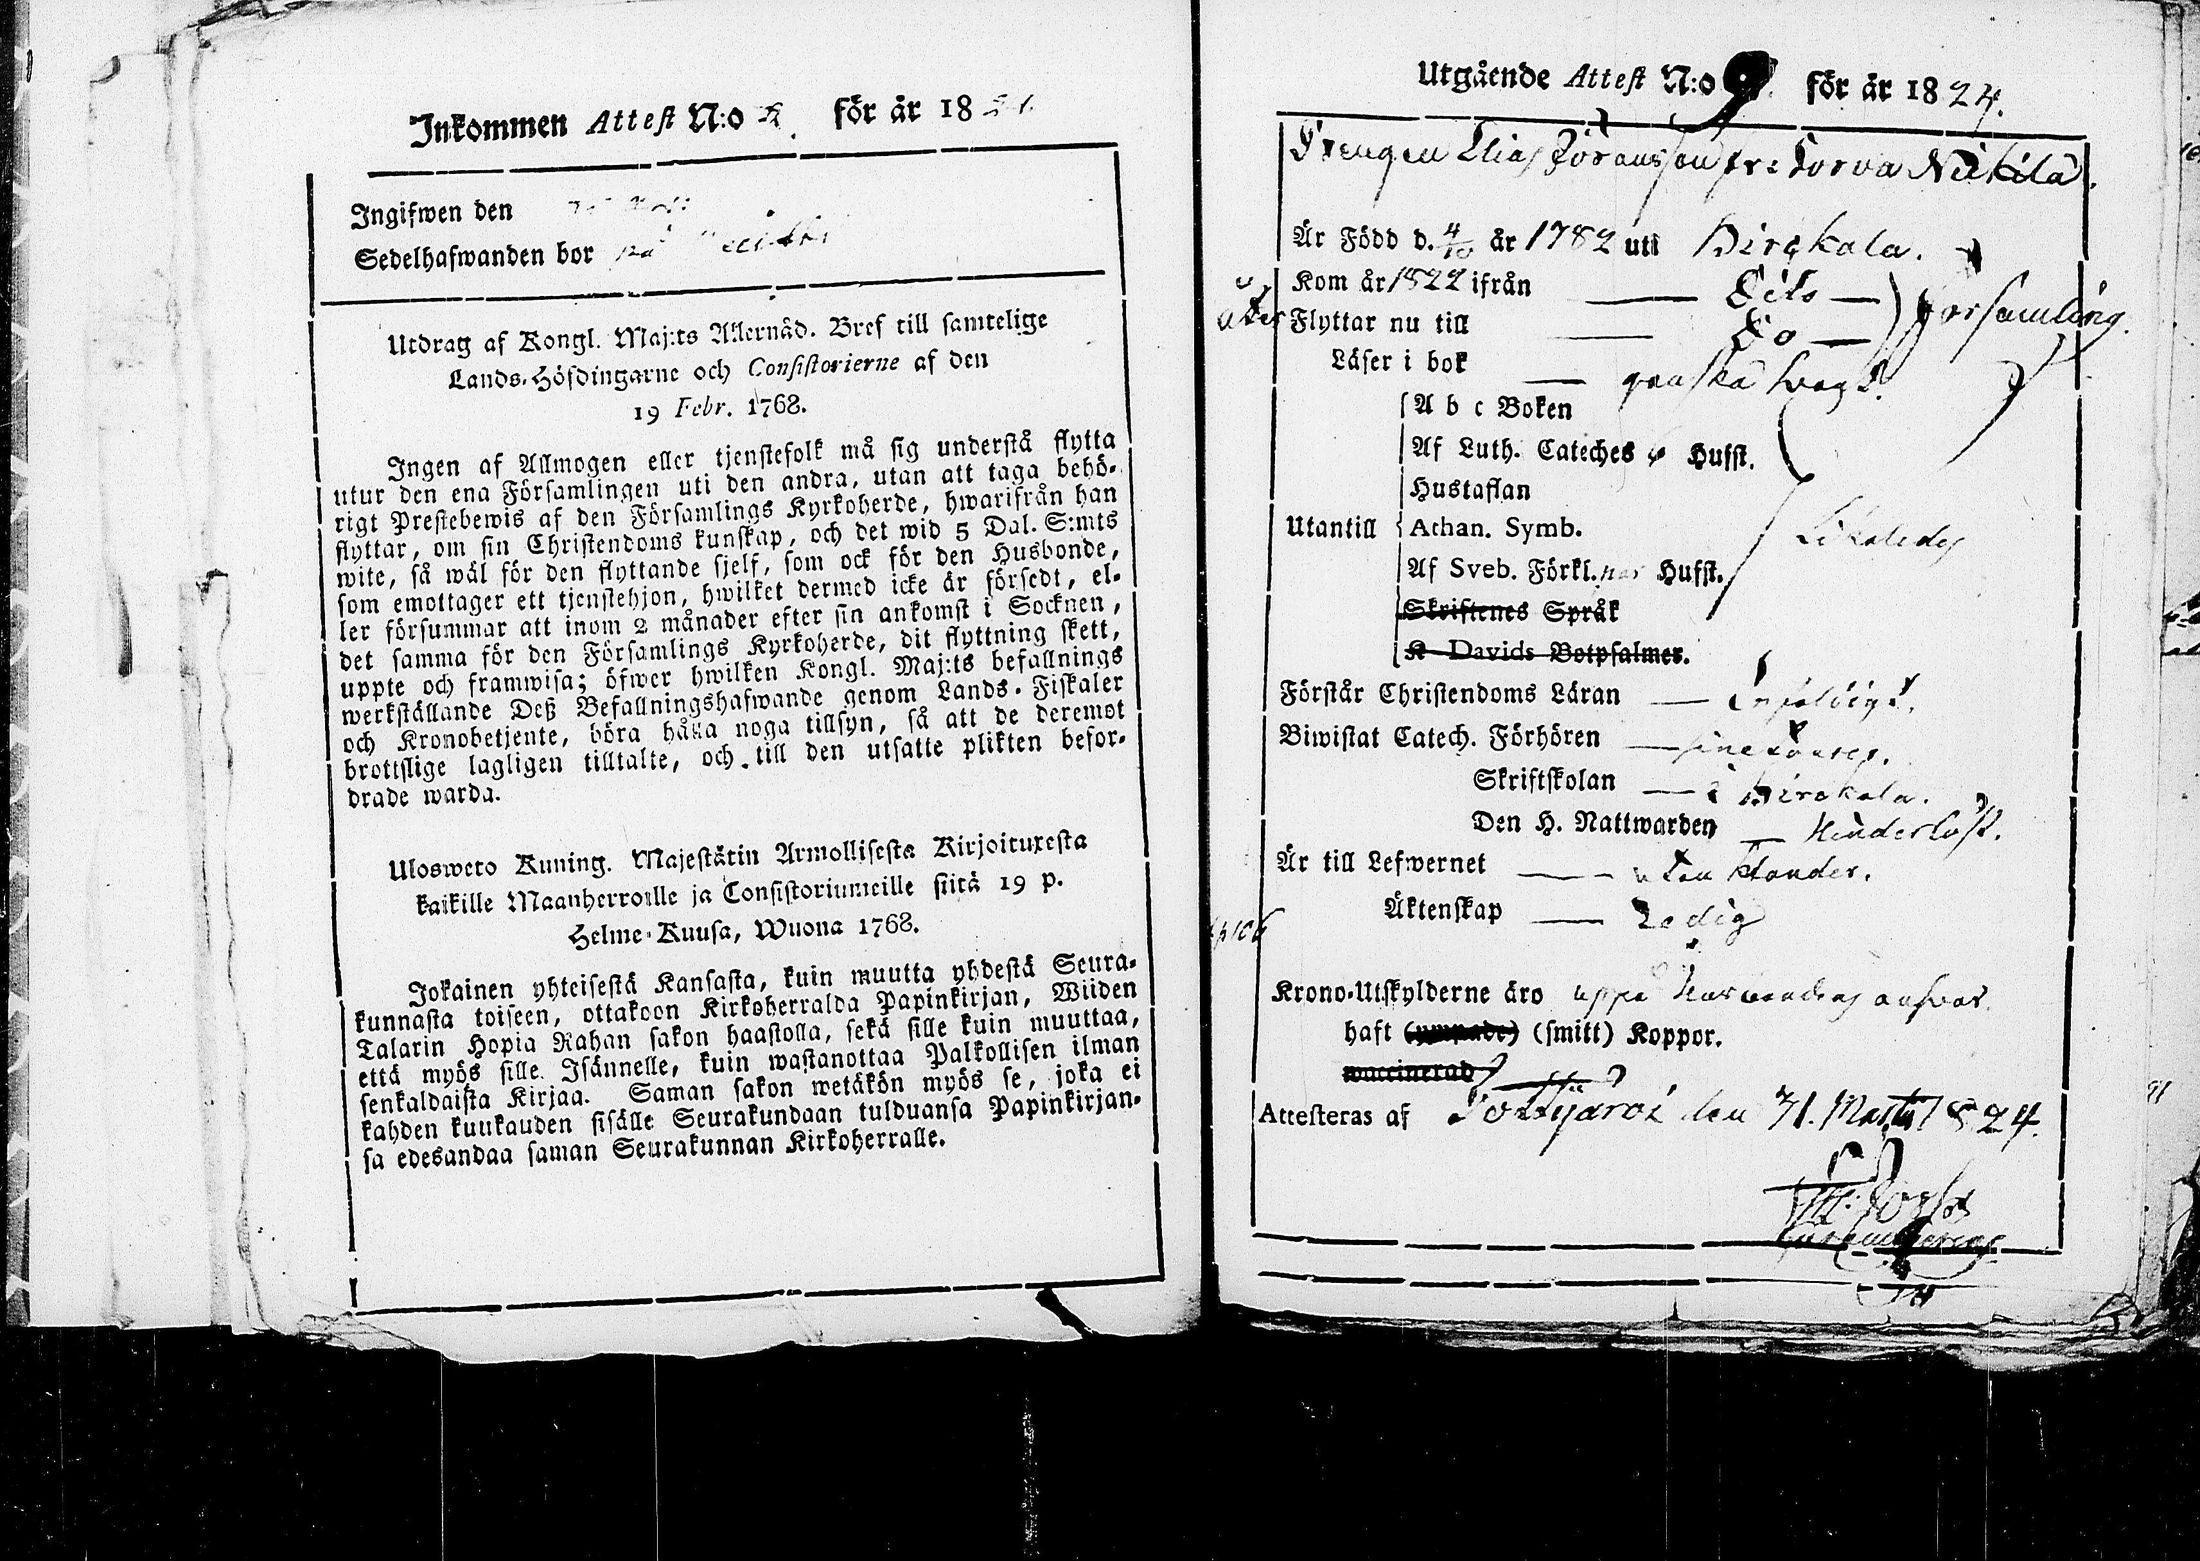 Inkommen Attest N:o 2. för år 18
Ingifwen den
Sedelhafwanden bor på
Utdrag af Kongl. Maj:ts Allernåd. Bref till samtelige
Lands-Höfdingarne och Consistorierne af den
19 Febr. 1768.
Ingen af Allmogen eller tjenstefolk må sig understå flytta
utur den ena Församlingen uti den andra, utan att taga behö-
rigt Prestebewis af den Församlings Kyrkoherde, hwarifrån han
flyttar, om sin Christendoms kunskap, och det wid 5 Dal. S:mts
wite, så wäl för den flyttande sjelf, som ock för den Husbonde,
som emottager ett tjenstehjon, hwilket dermed icke är försedt, el-
ler försummar att inom 2 månader efter sin ankomst i Socknen,
det samma för den Församlings Kyrkoherde, dit flyttning skett,
uppte och framwisa; öfwer hwilken Kongl. Maj:ts befallnings
werkställande Deß Befallningshafwande genom Lands-Fiskaler
och Kronobetjente, böra hålla noga tillsyn, så att de deremot
brottslige lagligen tilltalte, och till den utsatte plikten befor-
drade warda.
Ulosweto Kuning. Majestätin Armollisesta Kirjoituxesta
kaikille Maanherroille ja Consistoriumeille siitä 19 p.
Helme-Kuusa, Wuona 1768.
Jokainen yhteisestä Kansasta, kuin muutta yhdestä Seura-
kunnasta toiseen, ottakoon Kirkoherralda Papinkirjan, Wiiden
Talarin Hopia Rahan sakon haastolla, sekä sille kuin muuttaa,
että myös sille Isännelle, kuin wastanottaa Palkollisen ilman
senkaldaista Kirjaa. Saman sakon wetäkön myös se, joka ei
kahden kuukauden sisälle Seurakundaan tulduansa Papinkirjan-
sa edesandaa saman Seurakunnan Kirkoherralle.
Utgående Attest N:o 9. för år 1824.
Drengen Elias Göransson fr: Torva Nikkilä.
Är Född d. 4/10 år 1782 uti Birckala.
Kom år 1822 ifrån — Dito —
Flyttar nu till — Do — Församling.
Läser i bok — ganska svagt.
A b c Boken
Af Luth. Cateches Husst.
Hustaflan
Utantill Athan. Symb. Likaledes
Af Sveb. Förkl. Husst.
Skriftenes Språk
K Davids Botpsalmer.
Förstår Christendoms Läran — Enfaldigt.
Biwistat Catech. Förhören —
Skriftskolan — i Birckala.
Den H. Nattwarden — Hinderlöst.
Är till Lefwernet — utan klander.
Äktenskap — Ledig
Krono-Utskylderne äro uppå Husbondens answar
haft (ympade) (smitt) Koppor.
waccinerad
Attesteras af Tottijärvi den 31. Martii 1824.